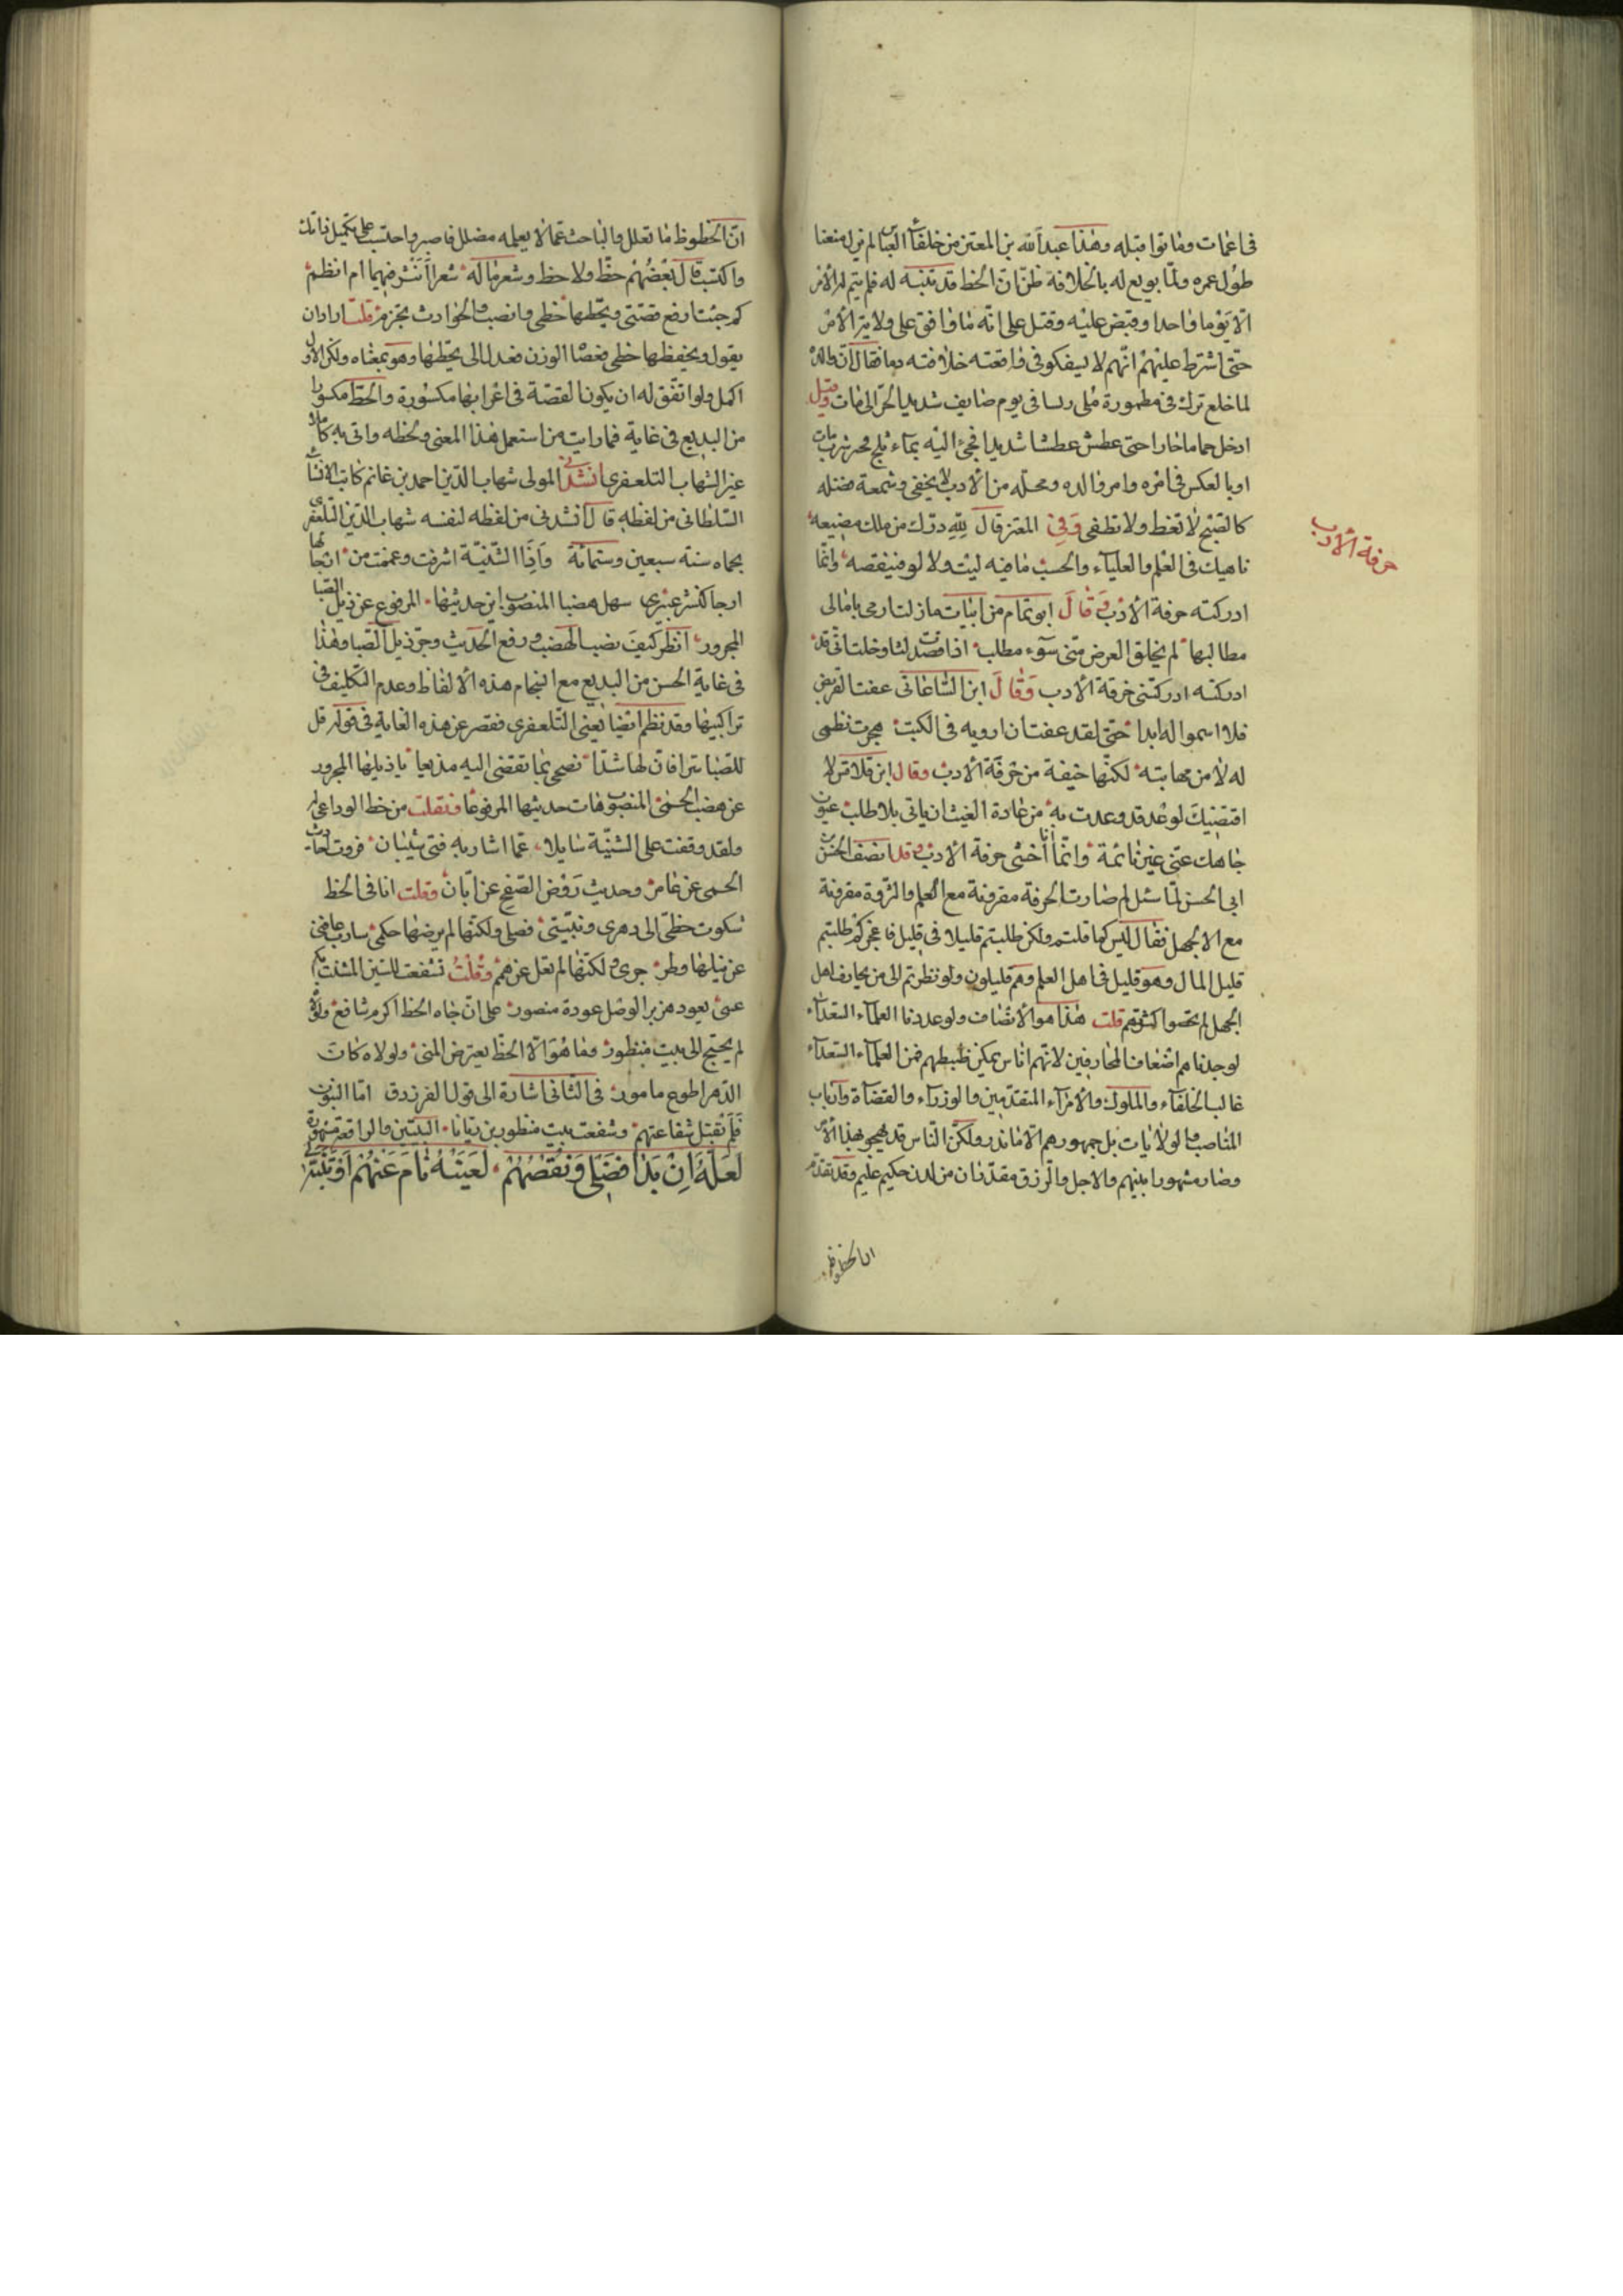 فى اغمات وماتوا قبله وهذا عبد الله بن المعتز من خلفاء بنى العباس لم يزل منغصا
طول عمره ولما بويع له بالخلافة ظن ان الحظ قد تنبه له فلم يتم له الامر
الا يوما واحدا وقبض عليه وقتل على انه ما وافق على ولاية الامر
حتى اشترط عليهم انهم لا يسفكو فى واقعته خلافته دما فقال ان والده
لما خلع ترك فى مطمورة فى يوم صايف شديد الحر الى ان مات وقيل
ادخل حماما حارا حتى عطش عطشا شديدا فجئ اليه بماء ثلج فحين شرب مات
او بالعكس فى امره وامر والده ومحله من الادب لا يخفى وشمعة فضله
كالصبح لا تغط ولا تطفى وفى المعتز قال لله درك من ملك بمضيعة
ناهيك فى العلم والعلياء والحسب ما فيه ليت ولا لو فينقصه وانما
ادركته حرفة الادب وقال ابو تمام من ابيات ما زلت ارمى بامالى
مطالبها لم يخلق العرض منى سوء مطلب اذا قصدت لشاو خلت انى قد
ادركته ادركتنى حرفة الادب وقال ابن الساعاتى عفت القريض
فلا اسموا له ابدا حتى لقد عفت ان ارويه فى الكتب هجرت نظمى
له لا من مهابته لكنها خيفة من حرفة الادب وقال ابن قلاقس لا
اقتضيك لوعد قد وعدت به من عادة الغيث ان ياتى بلا طلب عيون
جاهك عنى غير نائمة وانما انا اخشى حرفة الادب وقد انصف الحسن بن
ابى الحسن لما سئل لم صارت الحرفة مقرونة مع العلم والثروة مقرونة
مع الجهل فقال ليس كما قلتم ولكن طلبتم قليلا فى قليل فاعجزكم طلبتم
قليل المال وهو قليل فى اهل العلم وهم قليلون ولو نظرتم الى من يحارف اهل
الجهل لم تحصوا كثرتهم قلت هذا هو الانصاف ولو عددنا العلماء السعداء
لوجدناهم اضعاف المحارفين لانهم اناس يمكن ضبطهم فمن العلماء السعداء
غالب الخلفاء والملوك والامراء المتقدمين والوزراء والقضاة وارباب
المناصب والولايات بل جمهورهم الا ما ندر ولكن الناس قد لهجو بهذا الامر
وصار مشهورا بينهم والاجل والرزق مقدران من لدن حكيم عليم وقد تقدم
ان الحظوظ
حرفة الادب
ان الحظوظ ما تعلل والباحث عما لا يعلمه مضلل فاصبر واحتسب على تكميل ذاتك
واكتسب قال بعضهم حظ ولا حظ وشعر ماله شعر أأنثر فيهما ام انظم
كم جئت ارفع قصتى ويحطها حظى وانصب والحوادث تجزم قلت اراد ان
يقول ويخفضها حظى فعصا الوزن فعدل الى يحطها وهو بمعناه ولكن الاول
اكمل ولو اتفق له ان يكون القصة فى اعرابها مكسورة والحظ مكسورا
من البديع فى غاية فما رايت من استعمل هذا المعنى ولحظه واتى به كاملا
غير الشهاب التلعفرى انشدنى المولى شهاب الدين احمد بن غانم كاتب الانشا
السلطانى من لفظه قال انشدنى من لفظه لنفسه شهاب الدين التلعفرى
بحماه سنة سبعين وستمائة واذا الثنية اشرقت وشممت من ارجائها
ارجا كنشر عبيرى سل هضبها المنصوب اين حديثها المرفوع عن ذيل الصبا
المجرور انظر كيف نصب الهضب ورفع الحديث وجر ذيل الصبا وهذا
فى غاية الحسن من البديع مع انسجام هذه الالفاظ وعدم التكليف فى
تراكيبها وقد نظم ايضا يعنى التلعفرى فقصر عن هذه الغاية فى قوله قل
للصبا سرا فان لها شذا تضحى بما تفضى اليه مذيعا يا ذيلها المجرور
عن هضب الحمى المنصوب هات حديثها المرفوعا ونقلت من خط الوداعى له
ولقد وقفت على الثنية سايلا عما اشار به فتى شيبان فروت احاديث
الحمى عن عامر وحديث روض السفح عن ابان وقلت انا فى الحظ
شكوت حظى الى دهرى ونبيتنى فضلى ولكنها لم يرضها حكمى
عن نيلها وطن جرى ولكنها لم تغل عن هم وقلت تشفعت للشين المشتت بيكم
عسى يعود هزبر الوصل عودة منصور على ان جاه الحظ اكرم شافع ولو انه
لم يحتج الى بيت منظور وما هو الا الحظ يعترض المنى ولولاه كان
الدهر اطوع مامور فى الثانى اشارة الى قول الفرزدق اما البنون
فلم تقبل شفاعتهم وشفعت بنت منظور بن زبانا البيتين والواقعة مشهورة
لعله ان بدا فضلى ونقصهم لعينه نام عنهم او تنبه لى